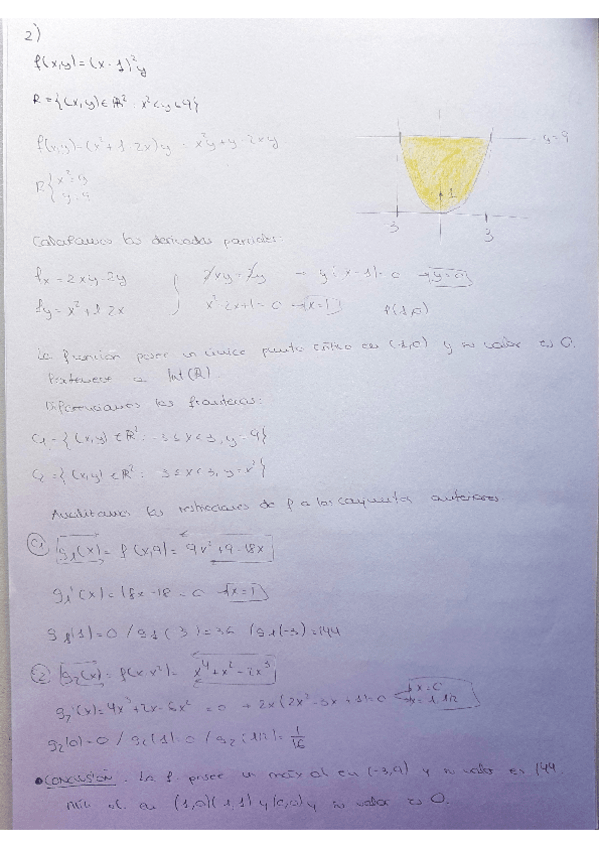 2)
f(x,y)=(x-1)²y
R={(x,y)∈ℝ²: x²≤y≤9}
f(x,y)=(x²+1-2x)y = x²y+y-2xy
y=9
R{ x²=y
y=9
1
3 3
Calculamos las derivadas parciales:
fx = 2xy-2y } 2xy=2y → y(x-1)=0 → y=0
fy = x²+1-2x } x²-2x+1=0 → x=1 P(1,0)
La función posee un único punto crítico en (1,0) y su valor es 0.
Pertenece a Int(R)
Diferenciamos las fronteras:
C1={(x,y)∈ℝ²: -3≤x≤3, y=9}
C2={(x,y)∈ℝ²: -3≤x≤3, y=x²}
Analizamos las restricciones de f a los conjuntos anteriores
C1 g1(x)= f(x,9)= 9x²+9-18x
g1'(x)=18x-18=0 x=1
g1(1)=0 / g1(3)=36 / g1(-3)=144
C2 g2(x)= f(x,x²)= x⁴+x²-2x³
g2'(x)=4x³+2x-6x²=0 → 2x(2x²-3x+1)=0 x=0
x=1, 1/2
g2(0)=0 / g2(1)=0 / g2(1/2)=1/16
• CONCLUSIÓN. La f. posee un máx ol en (-3,9) y su valor es 144
mín ol. en (1,0)(1,1) y (0,0) y su valor es 0.